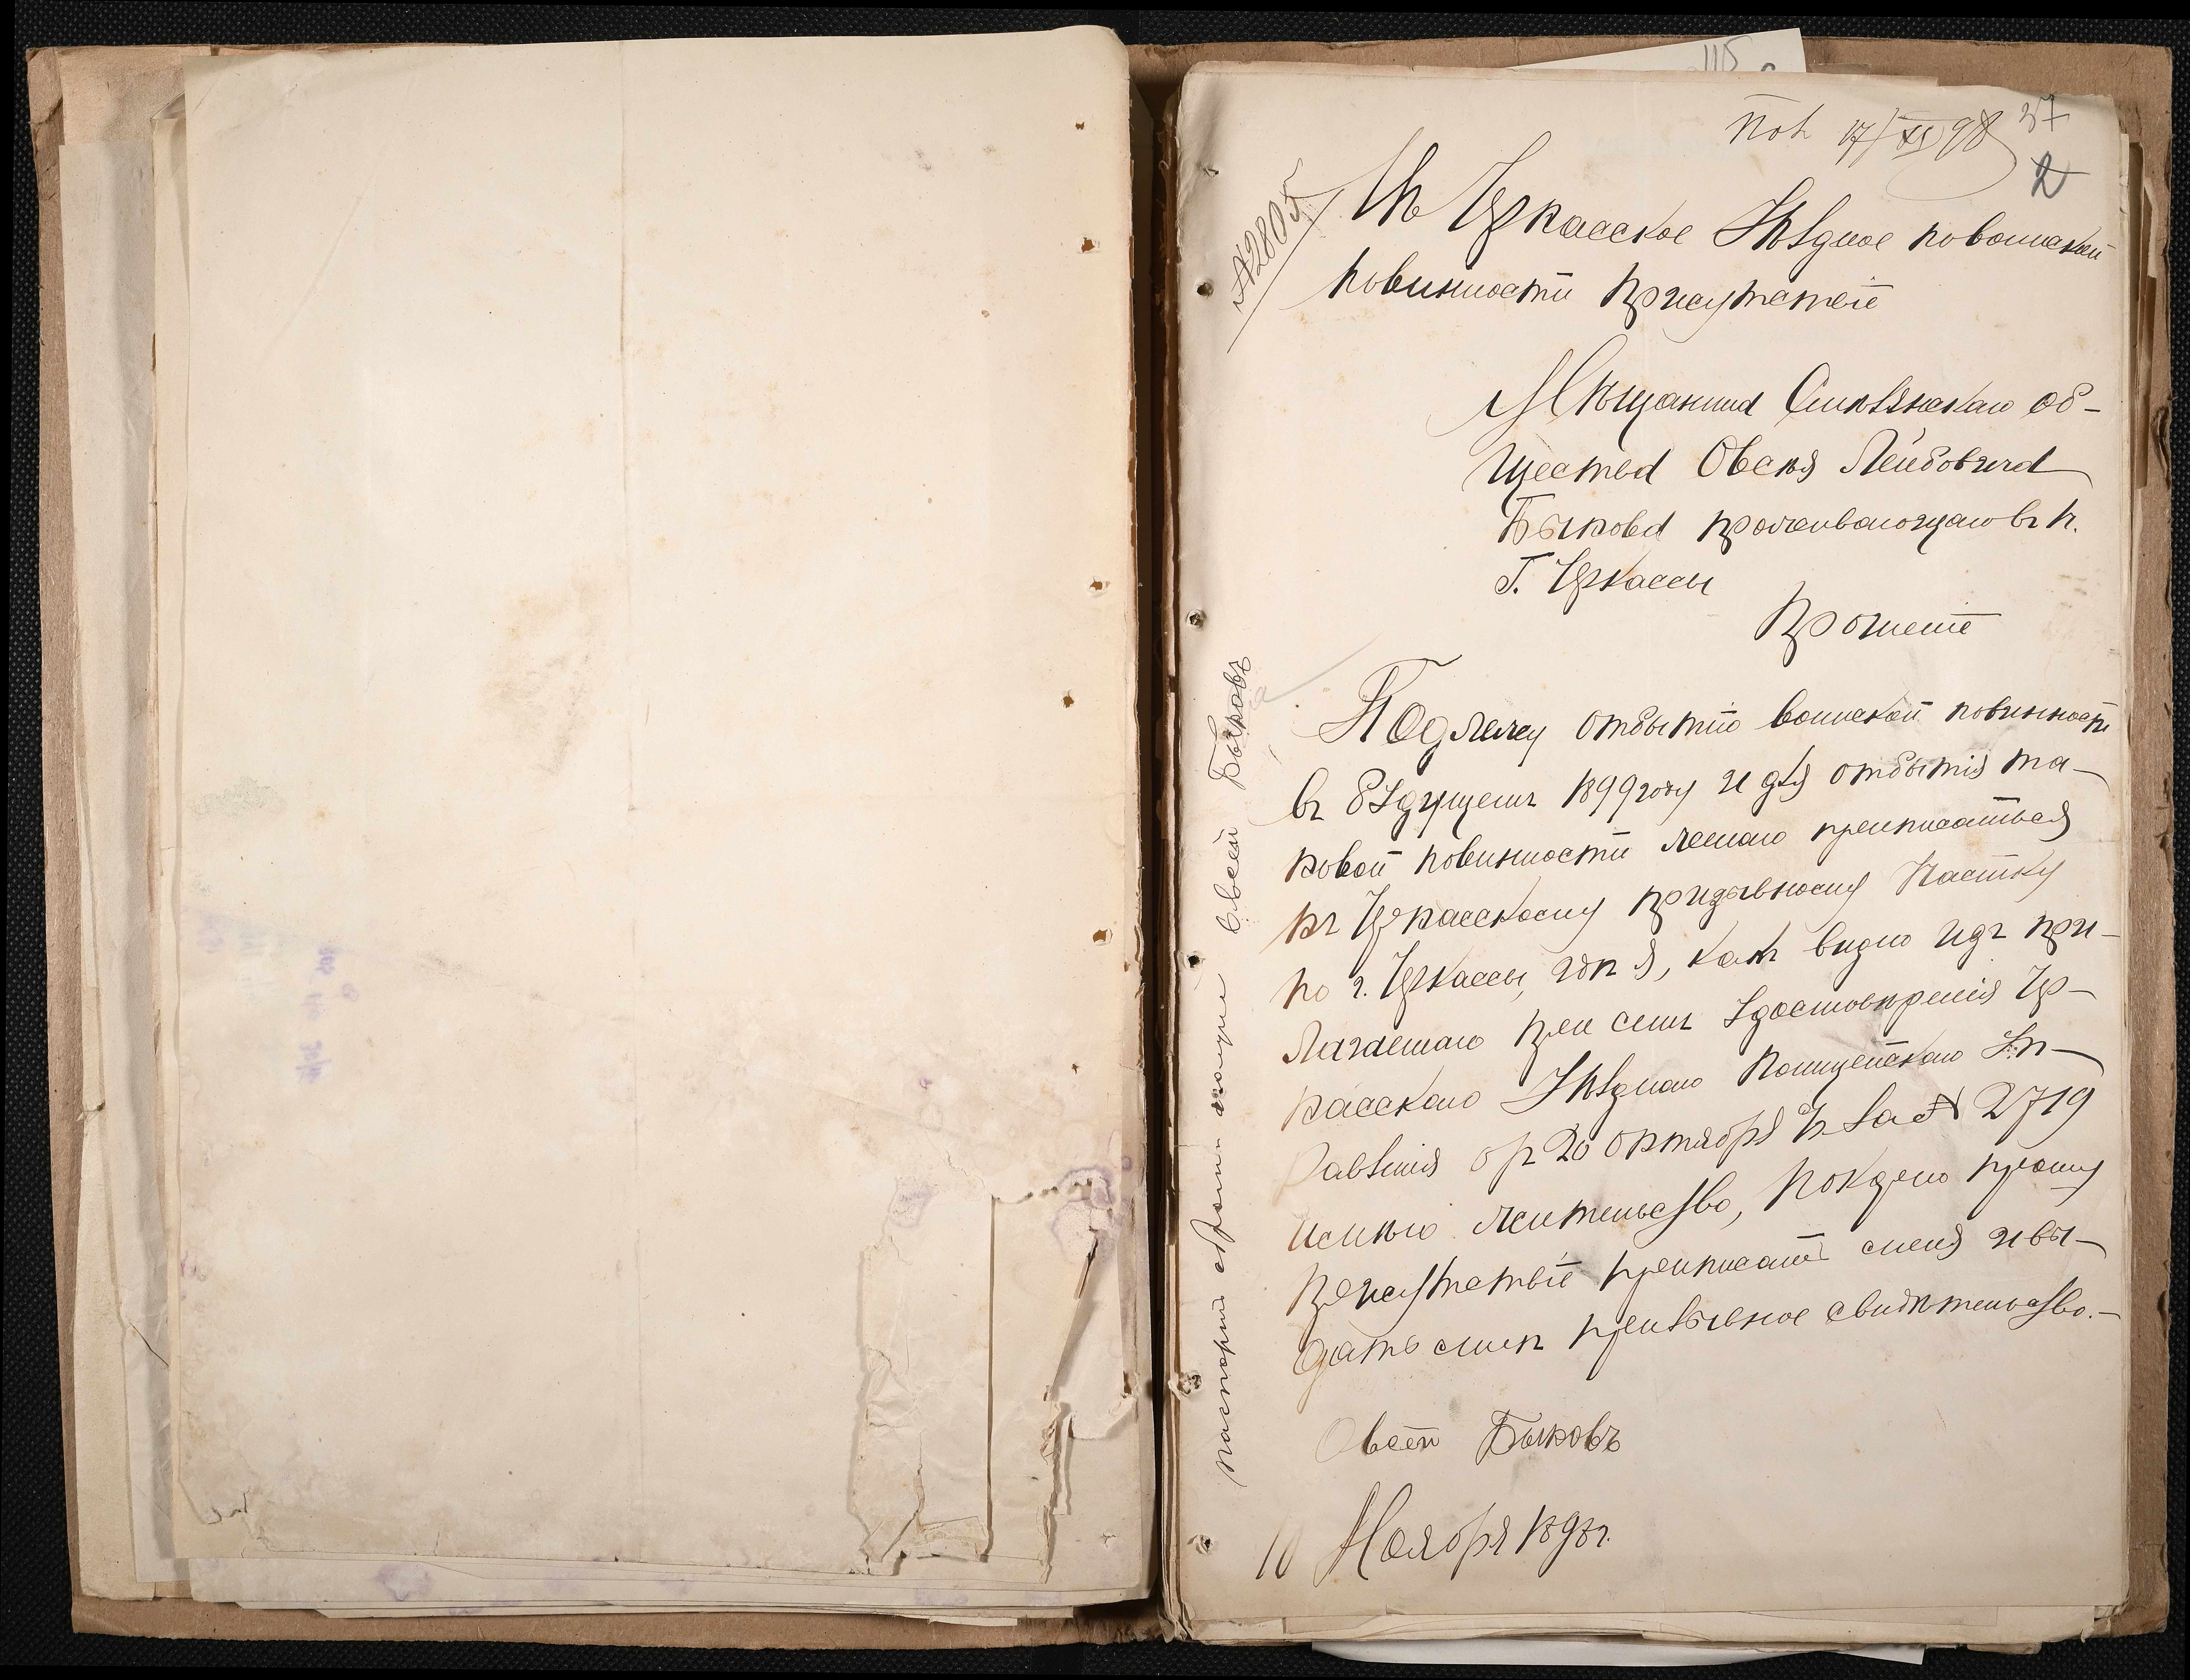 Пол 17/XI 98
37
2
№2805
Въ Черкасское Уѣздное по воинской
повинности Присутствіе
Мѣщанина Смѣлянскаго об-
щества Овсѣя Лейбовича
Быкова проживающаго въ
г. Черкассы
Прошеніе
Подлежу отбытію воинской повинности
въ будущемъ 1899 году и для отбытія та-
ковой повинности желаю приписаться
къ Черкасскому призывному участку
по г. Черкассы, гдѣ я, какъ видно изъ при-
лагаемаго при семъ удостовѣренія Чер-
касскаго Уѣзднаго Полицейскаго Уп-
равленія отъ 20 октября за № 2719
имѣю жительство, покорно прошу
Присутствіе приписать меня и вы-
дать мнѣ призывное свидѣтельство.-
Овсей Быковъ
10 Ноября 1898 г.
паспортъ обратно получилъ Овсей Быковъ